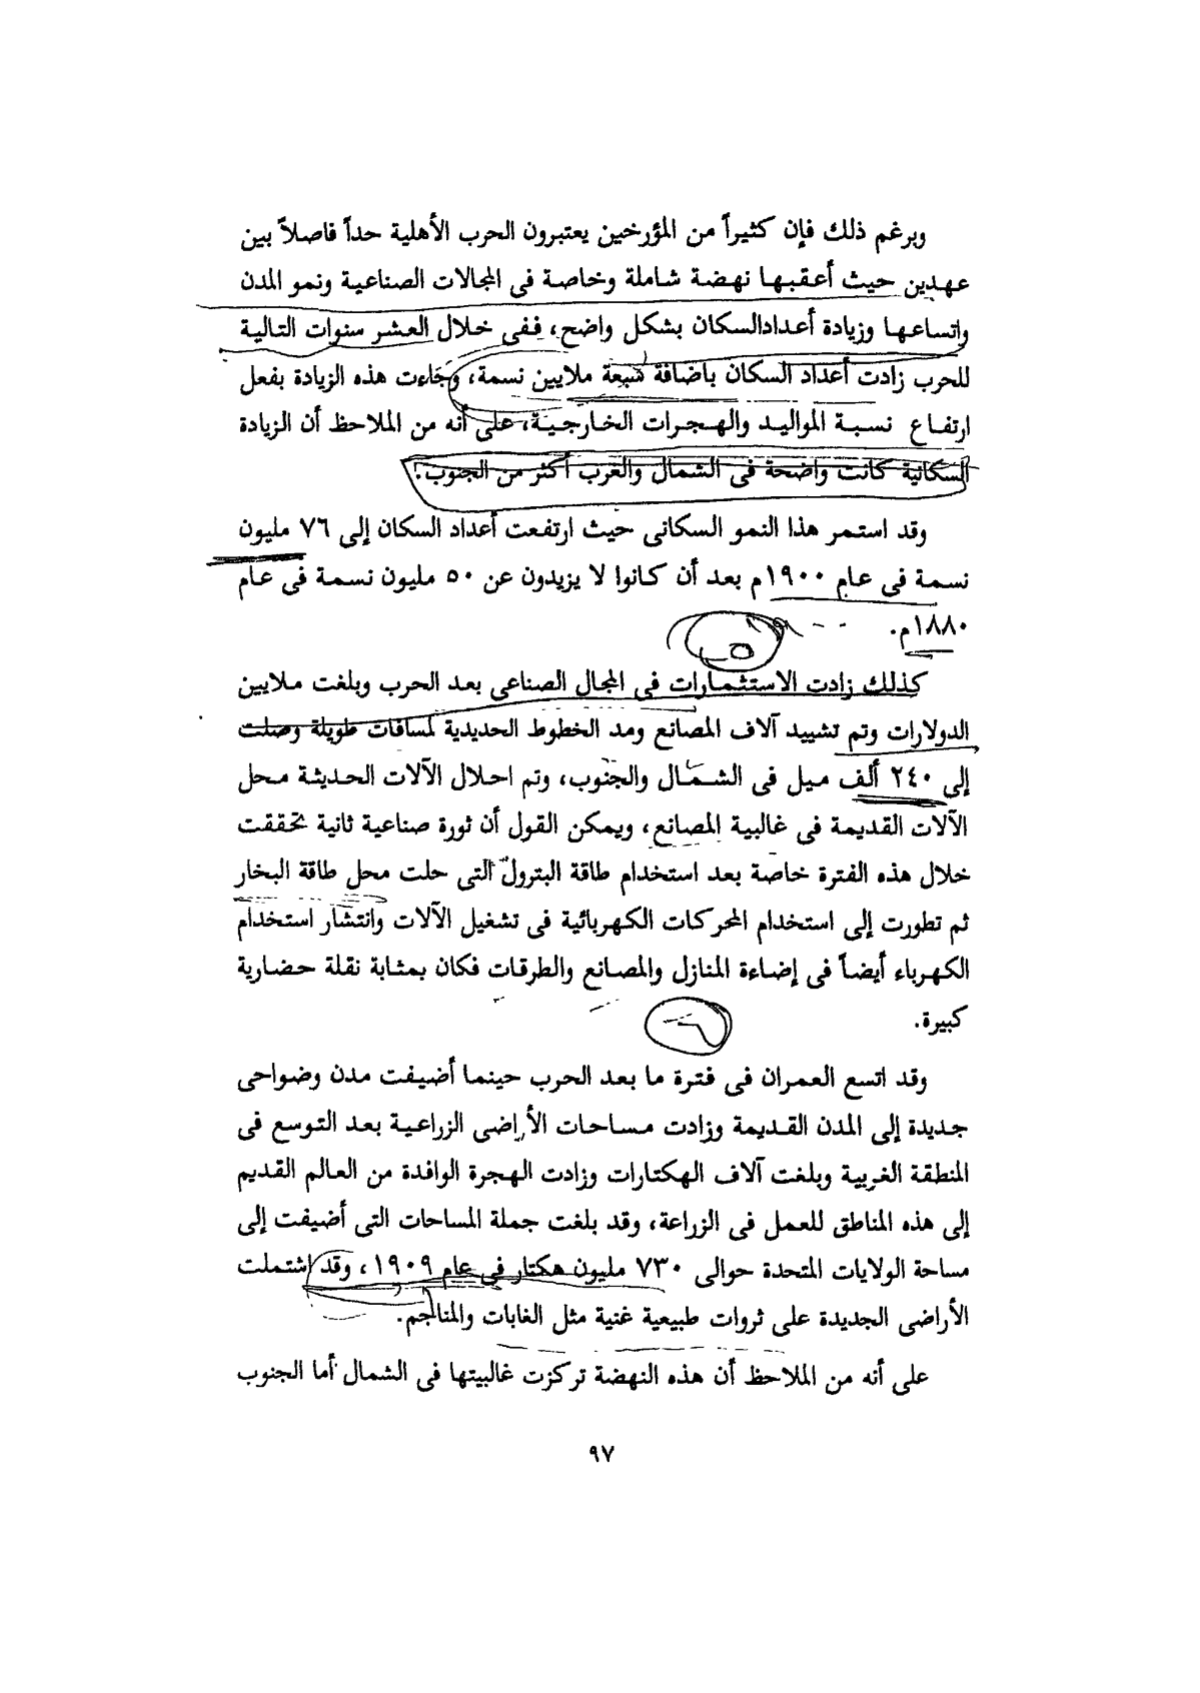 وبرغم ذلك فإن كثيراً من المؤرخين يعتبرون الحرب الأهلية حداً فاصلاً بين
عهدين حيث أعقبها نهضة شاملة وخاصة فى المجالات الصناعية ونمو المدن
واتساعها وزيادة أعدادالسكان بشكل واضح، ففى خلال العشر سنوات التالية
للحرب زادت أعداد السكان باضافة سبعة ملايين نسمة، وجاءت هذه الزيادة بفعل
ارتفاع نسبة المواليد والهجرات الخارجية، على أنه من الملاحظ أن الزيادة
السكانية كانت واضحة فى الشمال والغرب أكثر من الجنوب.
وقد استمر هذا النمو السكانى حيث ارتفعت أعداد السكان إلى ٧٦ مليون
نسمة فى عام ١٩٠٠م بعد أن كانوا لا يزيدون عن ٥٠ مليون نسمة فى عام
١٨٨٠م.
كذلك زادت الاستثمارات فى المجال الصناعى بعد الحرب وبلغت ملايين
الدولارات وتم تشييد آلاف المصانع ومد الخطوط الحديدية لمسافات طويلة وصلت
إلى ٢٤٠ ألف ميل فى الشمال والجنوب، وتم احلال الآلات الحديثة محل
الآلات القديمة فى غالبية المصانع، ويمكن القول أن ثورة صناعية ثانية تحققت
خلال هذه الفترة خاصة بعد استخدام طاقة البترول التى حلت محل طاقة البخار
ثم تطورت إلى استخدام المحركات الكهربائية فى تشغيل الآلات وانتشار استخدام
الكهرباء أيضاً فى إضاءة المنازل والمصانع والطرقات فكان بمثابة نقلة حضارية
كبيرة.
وقد اتسع العمران فى فترة ما بعد الحرب حينما أضيفت مدن وضواحى
جديدة إلى المدن القديمة وزادت مساحات الأراضى الزراعية بعد التوسع فى
المنطقة الغربية وبلغت آلاف الهكتارات وزادت الهجرة الوافدة من العالم القديم
إلى هذه المناطق للعمل فى الزراعة، وقد بلغت جملة المساحات التى أضيفت إلى
مساحة الولايات المتحدة حوالى ٧٣٠ مليون هكتار فى عام ١٩٠٩، وقد اشتملت
الأراضى الجديدة على ثروات طبيعية غنية مثل الغابات والمناجم.
على أنه من الملاحظ أن هذه النهضة تركزت غالبيتها فى الشمال أما الجنوب
٩٧